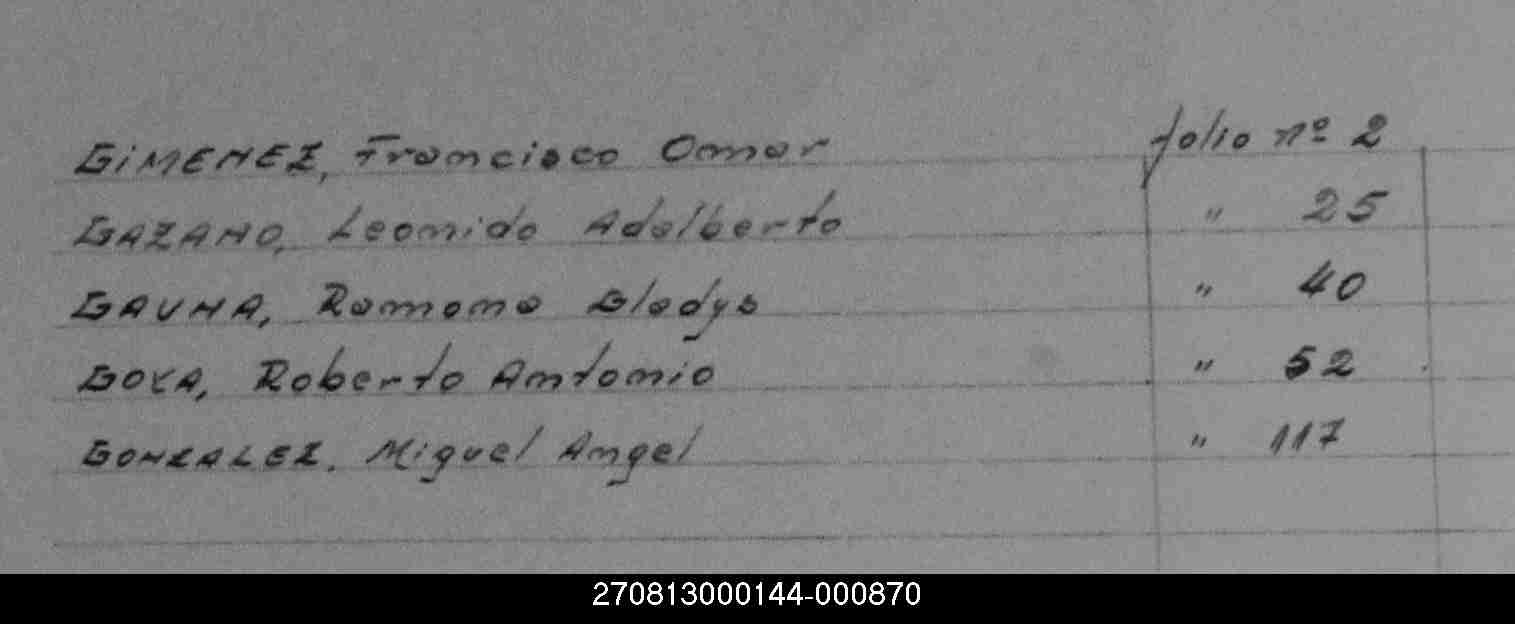 GIMENEZ, Francisco Omar folio nº 2
GAZANO, Leonido Adalberto " 25
GAUNA, Ramona Gladys " 40
GOYA, Roberto Antonio " 52
GONZALEZ. Miguel Angel " 117
270813000144-000870